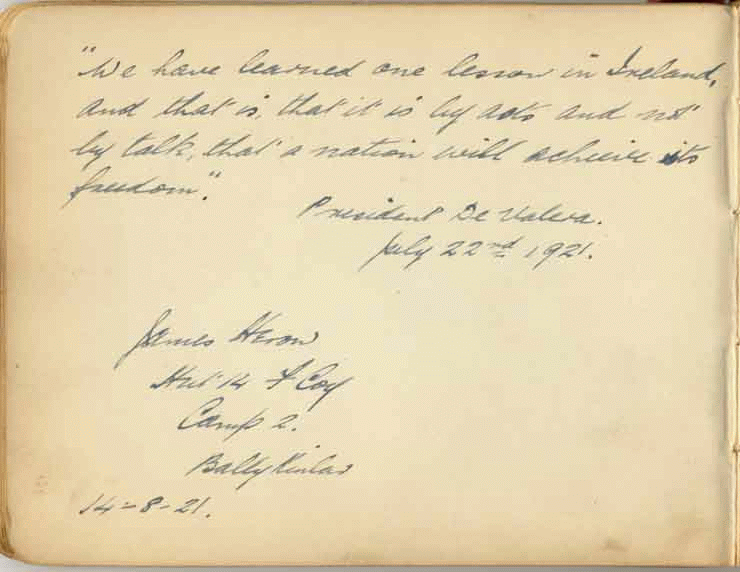 "We have learned one lesson in Ireland,
and that is, that it is by acts and not
by talk, that a nation will acheive its
freedom".
President De Valera.
July 22nd 1921.
James Heron
Hut 14 F Coy
Camp 2.
Ballykinlar
14-8-21.